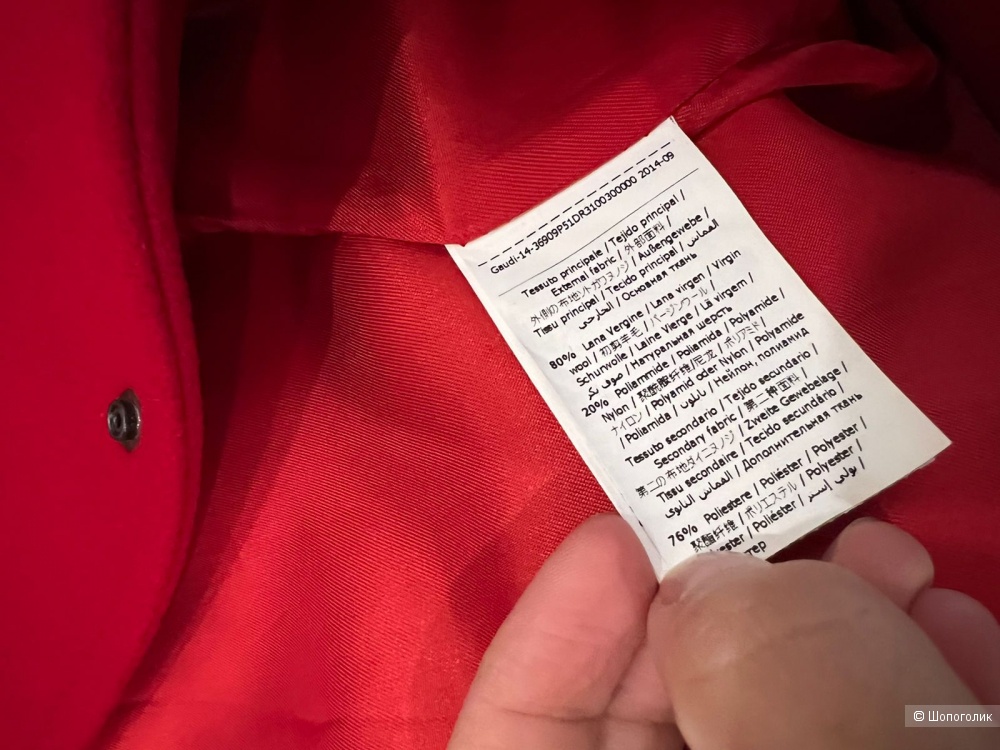 Gaudi-14-36909P51DR3100300000 2014-09
Tessuto principale / Tejido principal /
External fabric / 外部面料 /
外側の布地ントガワヌノジ / Außengewebe /
Tissu principal / Tecido principal / القماش
الخارجي / Основная ткань
80% Lana Vergine / Lana virgen / Virgin
wool / 初剪羊毛 / バージンウール /
Schurwolle / Laine Vierge / Lã virgem /
صوف بكر / Натуральная шерсть
20% Poliammide / Poliamida / Polyamide /
Nylon / 聚酰胺纤维/尼龙 / ポリアミド/
ナイロン / Polyamid oder Nylon / Polyamide
/ Poliamida / نايلون / Нейлон, полиамид
Tessuto secondario / Tejido secundario /
Secondary fabric / 第二种面料 /
第二の布地ダイニヌノジ / Zweite Gewebelage /
Tissu secondaire / Tecido secundário /
القماش الثانوي / Дополнительная ткань
76% Poliestere / Poliéster / Polyester /
聚酯纤维 / ポリエステル / Polyester /
ester / Poliéster / بولي إستر /
тер
© Шопоголик